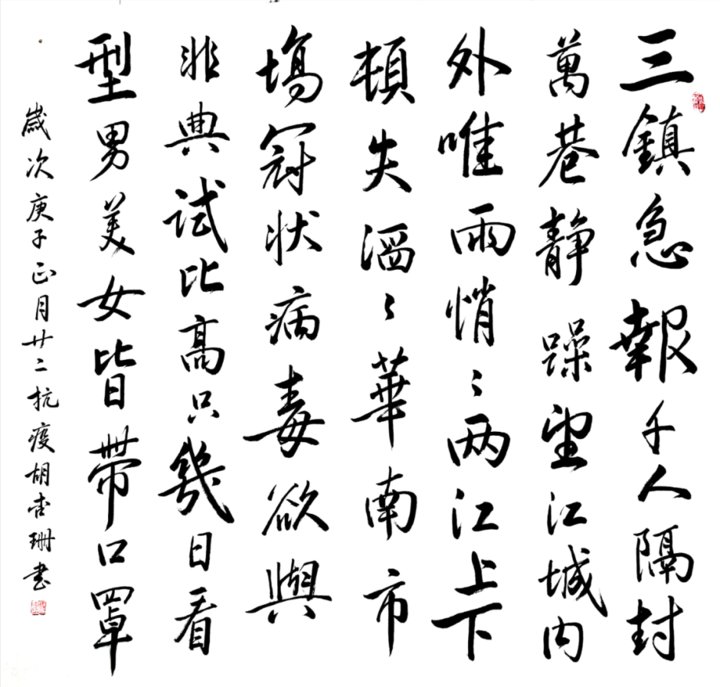 三鎮急報千人隔封
萬巷靜躁望江城内
外唯雨悄〻两江上下
頓失滔〻華南市
塲冠狀病毒欲與
非典試比高只幾日看
型男美女皆帶口罩
歲次庚子正月廿二抗疫胡珊書